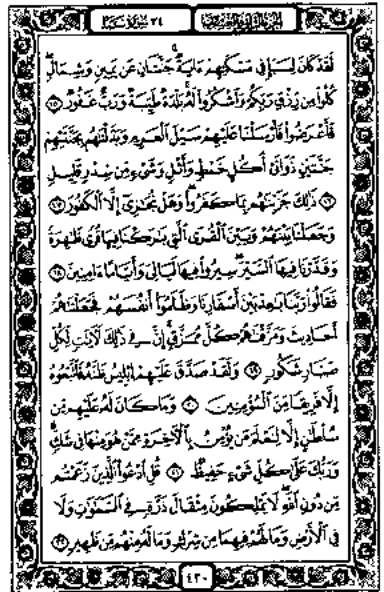 الجزء الثاني والعشرون ٣٤ سورة سبأ
لَقَدْ كَانَ لِسَبَإٍ فِي مَسْكَنِهِمْ ءَايَةٌ جَنَّتَانِ عَن يَمِينٍ وَشِمَالٍ
كُلُوا۟ مِن رِّزْقِ رَبِّكُمْ وَٱشْكُرُوا۟ لَهُۥ بَلْدَةٌ طَيِّبَةٌ وَرَبٌّ غَفُورٌ ١٥
فَأَعْرَضُوا۟ فَأَرْسَلْنَا عَلَيْهِمْ سَيْلَ ٱلْعَرِمِ وَبَدَّلْنَٰهُم بِجَنَّتَيْهِمْ
جَنَّتَيْنِ ذَوَاتَىْ أُكُلٍ خَمْطٍ وَأَثْلٍ وَشَىْءٍ مِّن سِدْرٍ قَلِيلٍ
١٦ ذَٰلِكَ جَزَيْنَٰهُم بِمَا كَفَرُوا۟ وَهَلْ نُجَٰزِىٓ إِلَّا ٱلْكَفُورَ ١٧
وَجَعَلْنَا بَيْنَهُمْ وَبَيْنَ ٱلْقُرَى ٱلَّتِى بَٰرَكْنَا فِيهَا قُرًى ظَٰهِرَةً
وَقَدَّرْنَا فِيهَا ٱلسَّيْرَ سِيرُوا۟ فِيهَا لَيَالِىَ وَأَيَّامًا ءَامِنِينَ ١٨
فَقَالُوا۟ رَبَّنَا بَٰعِدْ بَيْنَ أَسْفَارِنَا وَظَلَمُوٓا۟ أَنفُسَهُمْ فَجَعَلْنَٰهُمْ
أَحَادِيثَ وَمَزَّقْنَٰهُمْ كُلَّ مُمَزَّقٍ إِنَّ فِى ذَٰلِكَ لَءَايَٰتٍ لِّكُلِّ
صَبَّارٍ شَكُورٍ ١٩ وَلَقَدْ صَدَّقَ عَلَيْهِمْ إِبْلِيسُ ظَنَّهُۥ فَٱتَّبَعُوهُ
إِلَّا فَرِيقًا مِّنَ ٱلْمُؤْمِنِينَ ٢٠ وَمَا كَانَ لَهُۥ عَلَيْهِم مِّن
سُلْطَٰنٍ إِلَّا لِنَعْلَمَ مَن يُؤْمِنُ بِٱلْءَاخِرَةِ مِمَّنْ هُوَ مِنْهَا فِى شَكٍّ
وَرَبُّكَ عَلَىٰ كُلِّ شَىْءٍ حَفِيظٌ ٢١ قُلِ ٱدْعُوا۟ ٱلَّذِينَ زَعَمْتُم
مِّن دُونِ ٱللَّهِ لَا يَمْلِكُونَ مِثْقَالَ ذَرَّةٍ فِى ٱلسَّمَٰوَٰتِ وَلَا
فِى ٱلْأَرْضِ وَمَا لَهُمْ فِيهِمَا مِن شِرْكٍ وَمَا لَهُۥ مِنْهُم مِّن ظَهِيرٍ ٢٢
٤٣٠